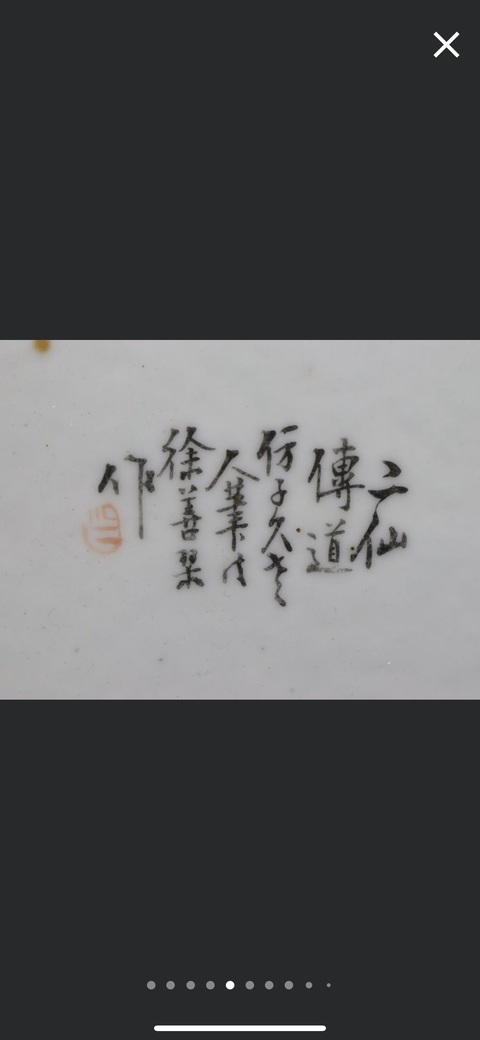 二仙
傳道
仿子久老
人筆法
徐善琹
作